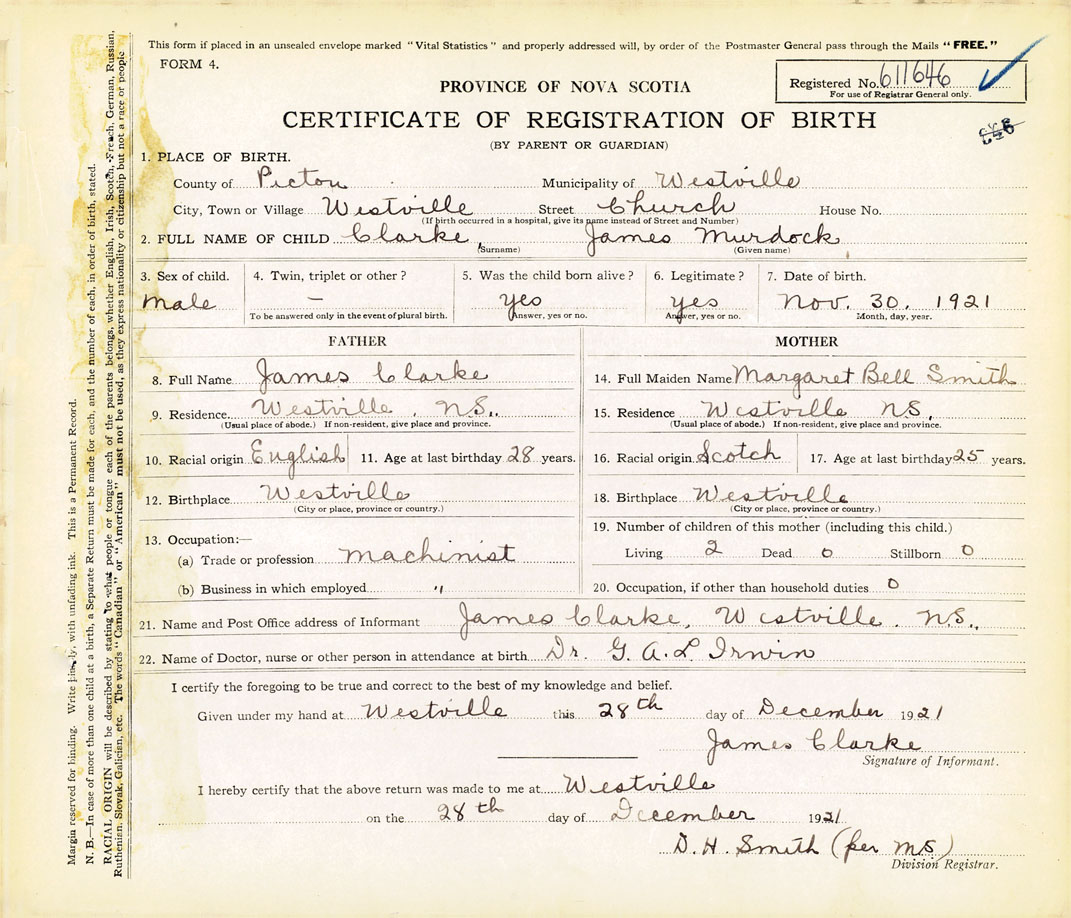 This form if placed in an unsealed envelope marked "Vital Statistics" and properly addressed will, by order of the Postmaster General pass through the Mails "FREE."
FORM 4.
Registered No. 611646
For use of Registrar General only.
PROVINCE OF NOVA SCOTIA
CERTIFICATE OF REGISTRATION OF BIRTH
(BY PARENT OR GUARDIAN)
1. PLACE OF BIRTH.
County of Picton Municipality of Westville
City, Town or Village Westville Street Church House No.
(If birth occurred in a hospital, give its name instead of Street and Number)
2. FULL NAME OF CHILD Clarke, James Murdock
(Surname) (Given name)
3. Sex of child. 4. Twin, triplet or other? 5. Was the child born alive? 6. Legitimate? 7. Date of birth.
Male – yes yes Nov. 30. 1921
To be answered only in the event of plural birth. Answer, yes or no. Answer, yes or no. Month, day, year.
FATHER MOTHER
8. Full Name James Clarke 14. Full Maiden Name Margaret Bell Smith
9. Residence Westville, N.S. 15. Residence Westville N.S.
(Usual place of abode.) If non-resident, give place and province. (Usual place of abode.) If non-resident, give place and province.
10. Racial origin English 11. Age at last birthday 28 years. 16. Racial origin Scotch 17. Age at last birthday 25 years.
12. Birthplace Westville 18. Birthplace Westville
(City or place, province or country.) (City or place, province or country.)
13. Occupation:— 19. Number of children of this mother (including this child.)
(a) Trade or profession Machinist Living 2 Dead 0 Stillborn 0
(b) Business in which employed " 20. Occupation, if other than household duties 0
21. Name and Post Office address of Informant James Clarke, Westville. N.S.
22. Name of Doctor, nurse or other person in attendance at birth Dr. G. A. L Irwin
I certify the foregoing to be true and correct to the best of my knowledge and belief.
Given under my hand at Westville this 28th day of December 1921
James Clarke
Signature of Informant.
I hereby certify that the above return was made to me at Westville
on the 28th day of December 1921
D. H. Smith (per M S)
Division Registrar.
Margin reserved for binding. Write plainly, with unfading ink. This is a Permanent Record.
N. B.—In case of more than one child at a birth, a Separate Return must be made for each, and the number of each, in order of birth, stated.
RACIAL ORIGIN will be described by stating to what people or tongue each of the parents belongs, whether English, Irish, Scotch, French, German, Russian,
Ruthenian, Slovak, Galician, etc. The words "Canadian" or "American" must not be used, as they express nationality or citizenship but not a race or people